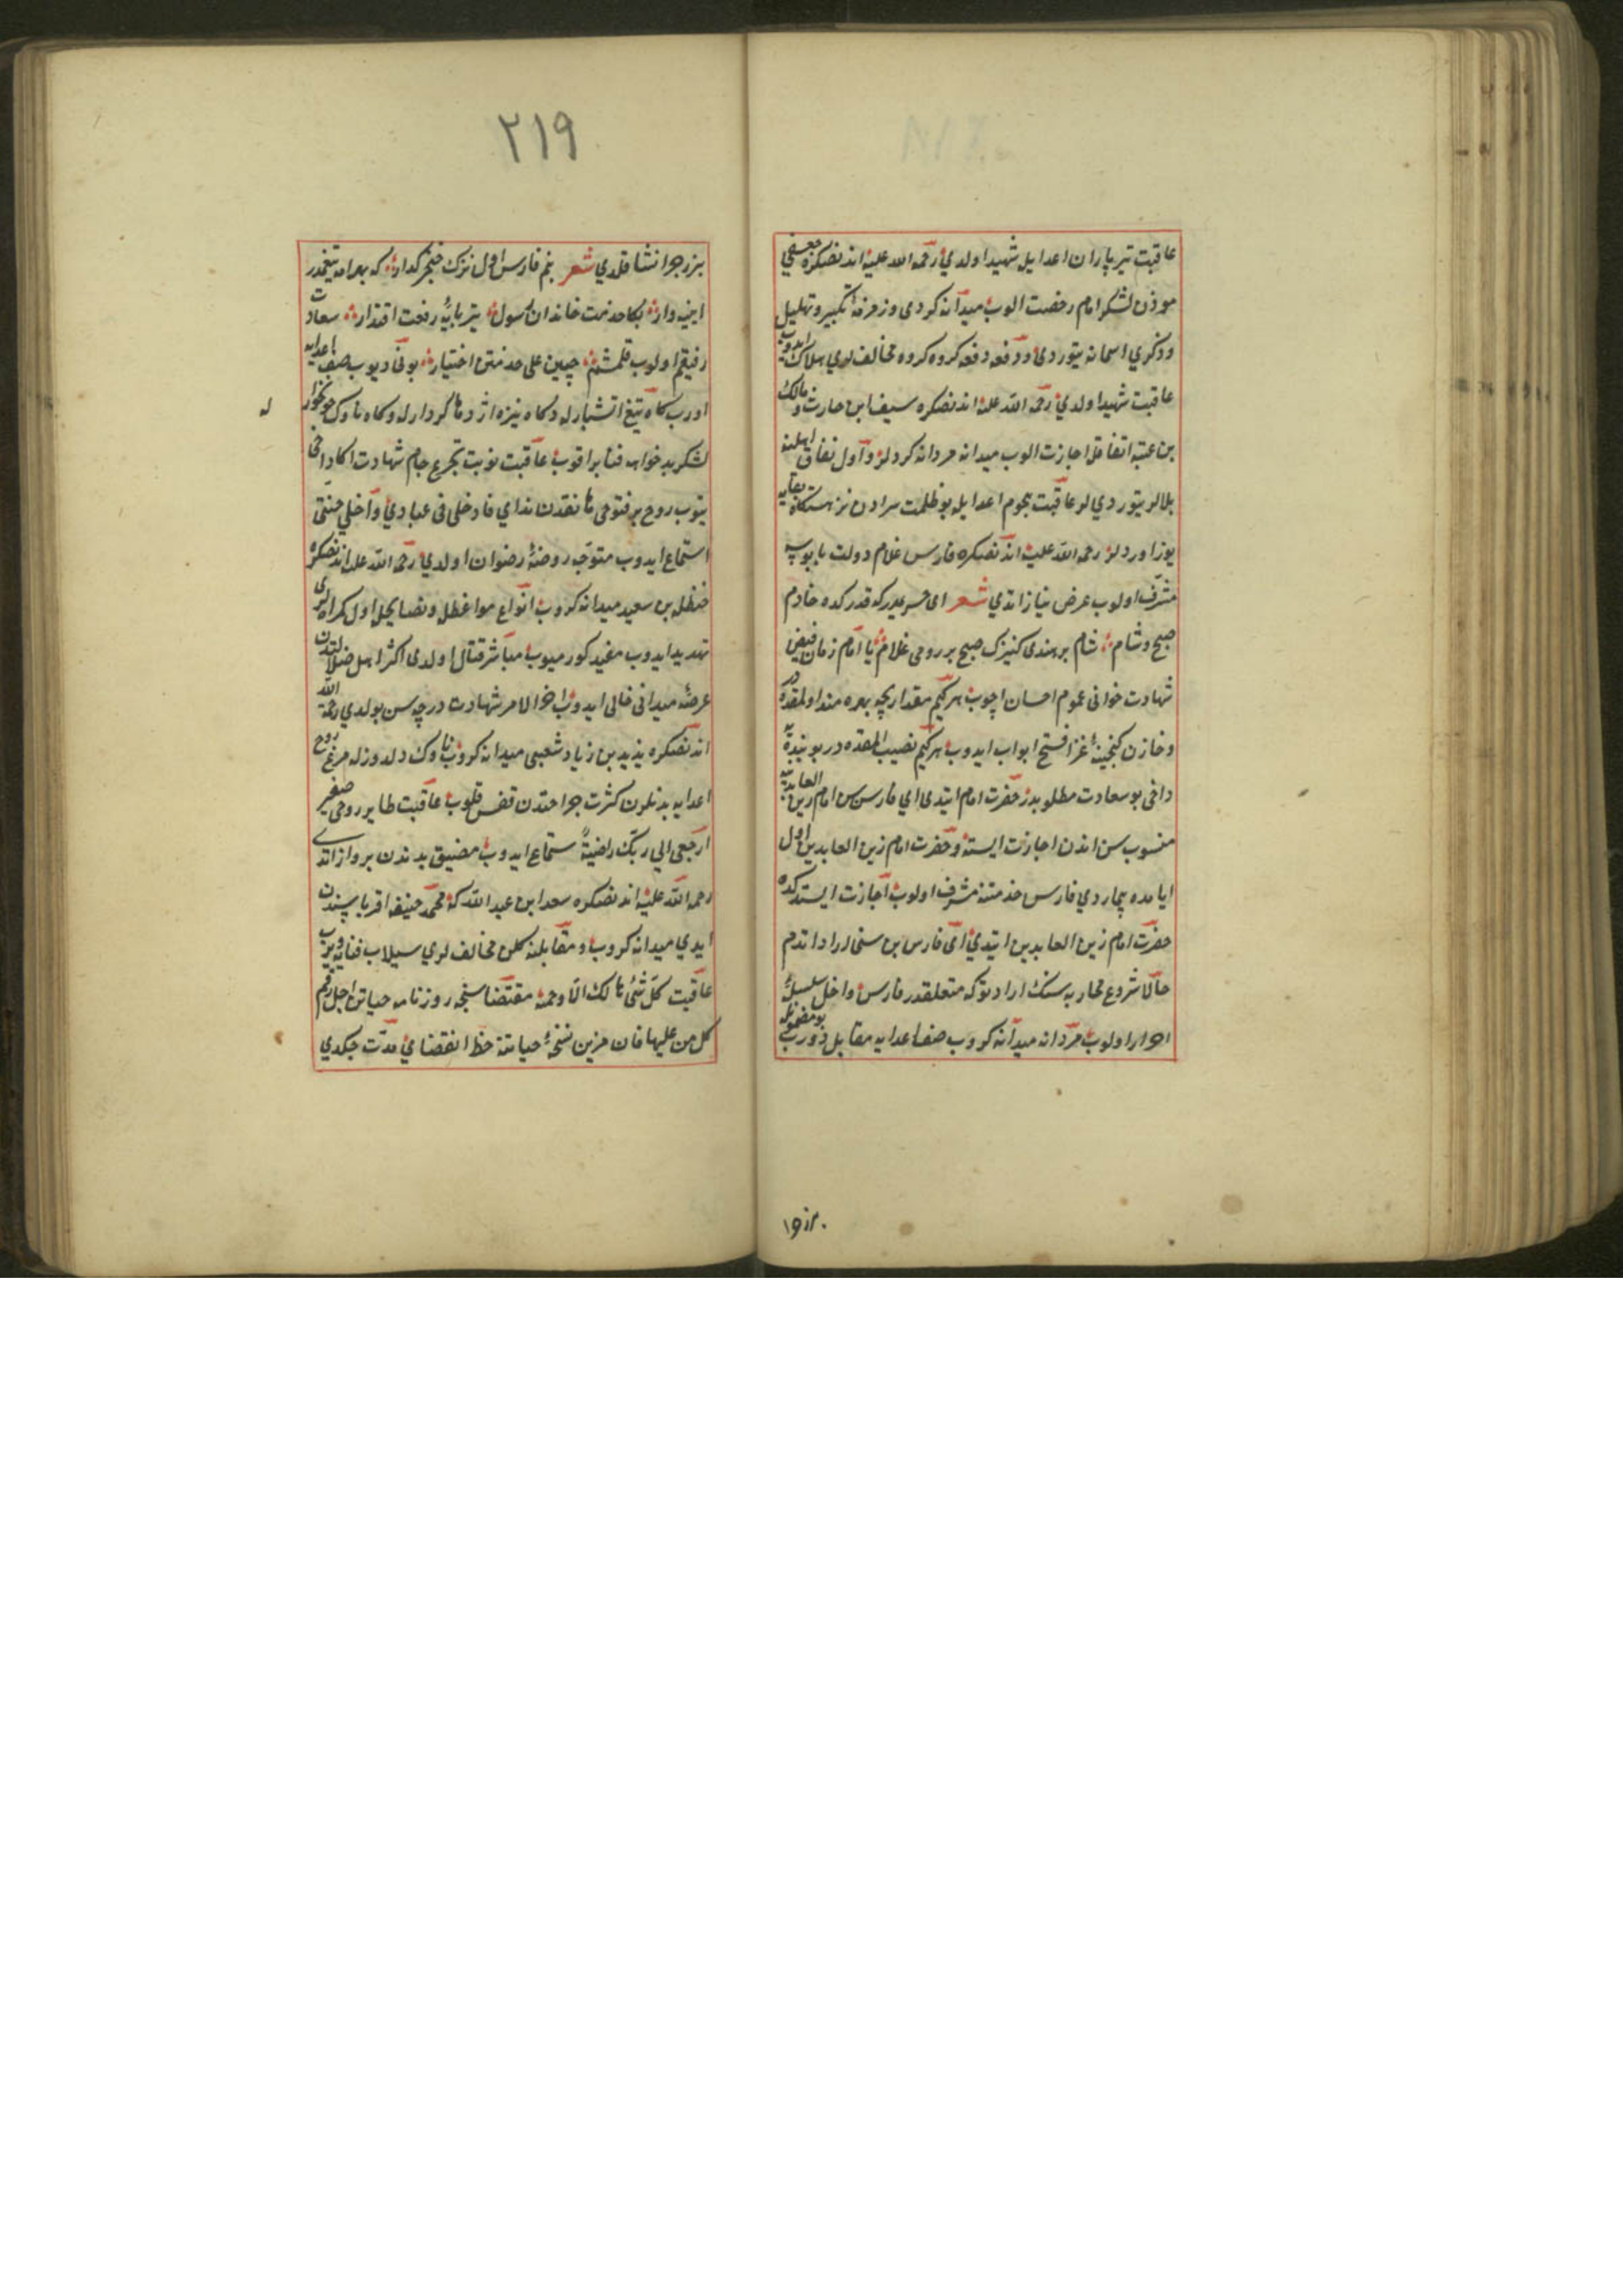 عاقبت تیر باران اعدا ایله شهید اولدی رحمة الله علیه اندنصکره جعفی
موذن لشکر امام رخصت الوب میدانه کردی و زمزمهٔ تکبیر و تهلیل
و ذکری اسمانه یتوردی و دفعه دفعه کروه کروه مخالفلری هلاک ایدوب
عاقبت شهید اولدی رحمة الله علیه اندنصکره سیف ابن حارث و مالک
بن عتبه اتفاقله اجازت الوب میدانه مردانه کردیلر و اول نفاق اهلینه
بلالر یتوردیلر عاقبت هجوم اعدا ایله بو ظلمت سرادن نزهتکاه بقایه
یوز اوردیلر رحمة الله علیه اندنصکره فارس غلام دولت پابوسیله
مشرف اولوب عرض نیاز اتدی شعر ای خسرو که قدرکده خادم
صبح و شام شام بر هندی کنیزک صبح بر رومی غلام یا امام زمان فیض
شهادت خوانی عموم احسان اچوب هر کیم مقدارنچه بهره مند اولمقده در
و خازن کنجینهٔ غزا فتح ابواب ایدوب هر کیم نصیب المقده در بو بندیه
داخی بو سعادت مطلوبدر حضرت امام ایتدی ای فارس سن امام زین العابدینه
منسوب سن اندن اجازت ایسته و حضرت امام زین العابدین اول
ایامده بیمار ردی فارس خدمتنه مشرف اولوب اجازت ایستدکده
حضرت امام زین العابدین ایتدی ای فارس بن سنی ازاد اتدم
حالا شروع محاربه سنک ارادتوکه متعلقدر فارس داخل سلسلهٔ
احرار اولوب مردانه میدانه کروب صف اعدایه مقابل دوروب بو مضمونله
۲۱۹
بر رجز انشا قلدی شعر بنم فارس اول ترک خنجر کذار که بهرامه تیغمدر
ایینه وار بکا خدمت خاندان رسول یتر پایهٔ رفعت اقتدار سعادت
رفیقم اولوب قلمشم حسین علی خدمتن اختیار بونی دیوب صف اعدایه
اوروب کاه تیغ اتشبار له و کاه نیزه اژدها کردار له و کاه ناوک خونخوار له
لشکر بدخواهه فنا براقوب عاقبت نوبت تجرع جام شهادت اکا داخی
یتوب روح پر فتوحی هاتفدن ندای فادخلی فی عبادی وادخلی جنتی
استماع ایدوب متوجه روضهٔ رضوان اولدی رحمة الله علیه اندنصکره
حنظله بن سعید میدانه کروب انواع مواعظله و نصایحله اول کمراهلری
تهدید ایدوب مفید کورمیوب مباشر قتال اولدی اکثر اهل ضلالتدن
عرصهٔ میدانی خالی ایدوب اخر الامر شهادت درجه سن بولدی رحمة الله
اندنصکره یزید بن زیاد شعبی میدانه کروب ناوک دلدوزله مرغ روح
اعدایه بدنلرن کثرت جراحتدن قفس قلوب عاقبت طایر روحی صفیر
ارجعی الی ربک راضیةً استماع ایدوب مضیق بدندن پرواز اتدی
رحمة الله علیه اندنصکره سعد ابن عبد الله که محمد حنیفه اقرباسندن
ایدی میدانه کروب و مقابلنه کلن مخالفلری سیلاب فنایه ویروب
عاقبت کل شئ هالک الا وجهه مقتضاسنجه روزنامه حیاتن اجل رقم
کل من علیها فان مزین نسخهٔ حیاتنه خط انقضای مدت چکدی